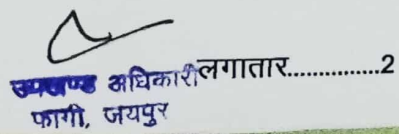 उपखण्ड अधिकारी लगातार...............2
फागी, जयपुर